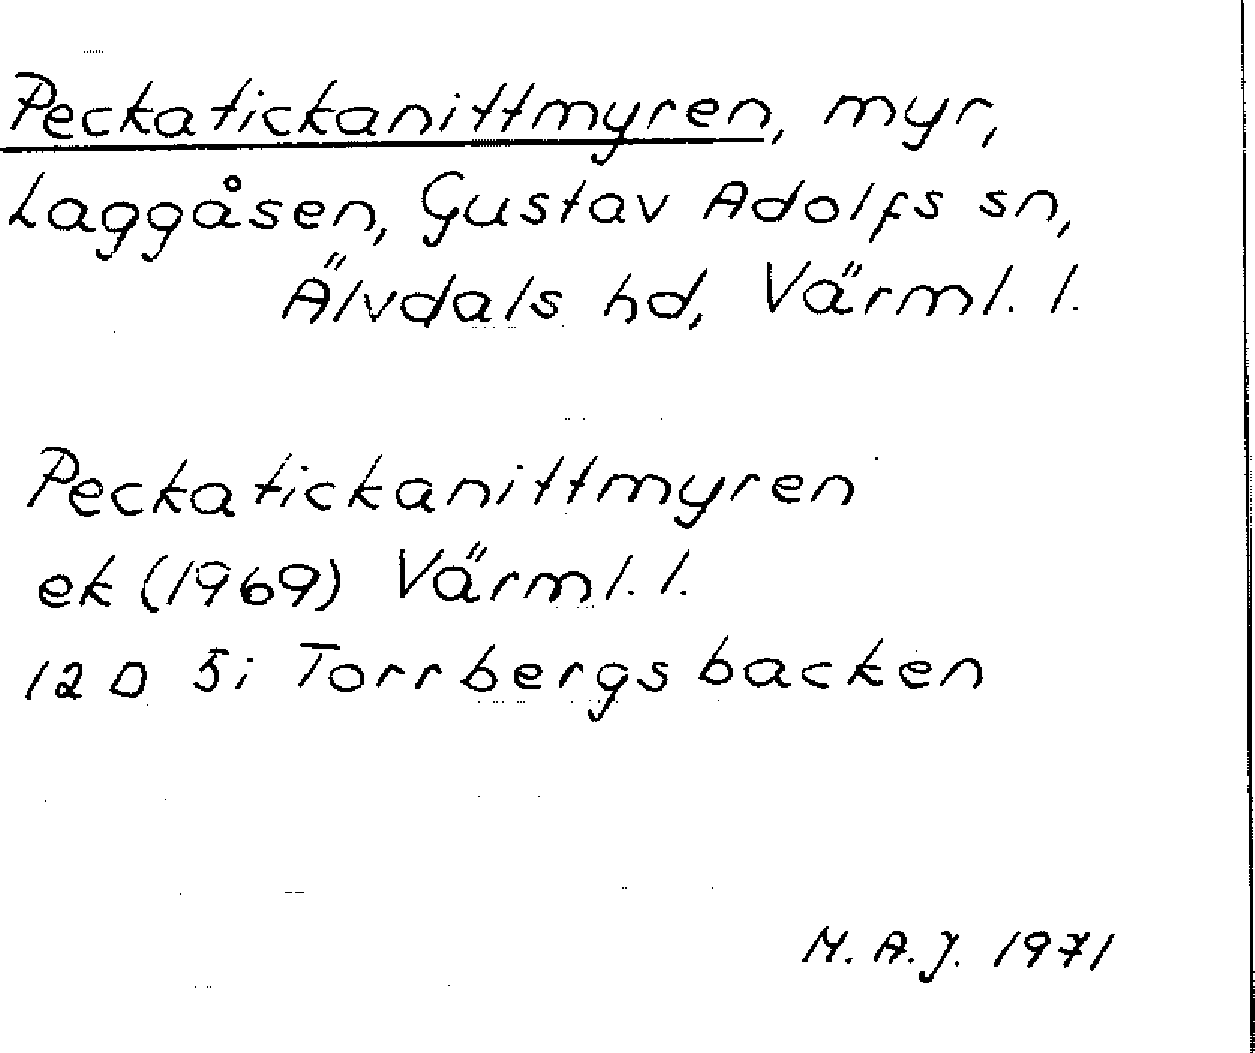 Peckatickanittmyren, myr,
Laggåsen, Gustav Adolfs sn,
Älvdals hd, Värml. l.
Peckatickanittmyren
ek (1969) Värml. l.
12 D 5i Torrbergsbacken
M. A. J. 1971